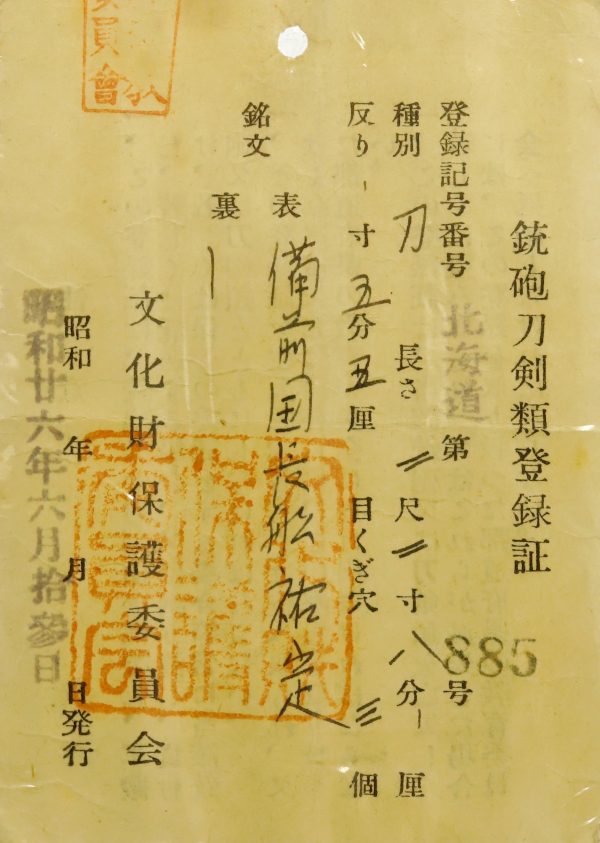 銃砲刀剣類登録証
登録記号番号 北海道 第 885 号
種別 刀 長さ 二尺二寸八分一厘
反り 一寸五分五厘 目くぎ穴 三個
銘文 表 備前国長船祐定
裏 一
文化財保護委員会
昭和 年 月 日発行
昭和廿六年六月拾參日
員會